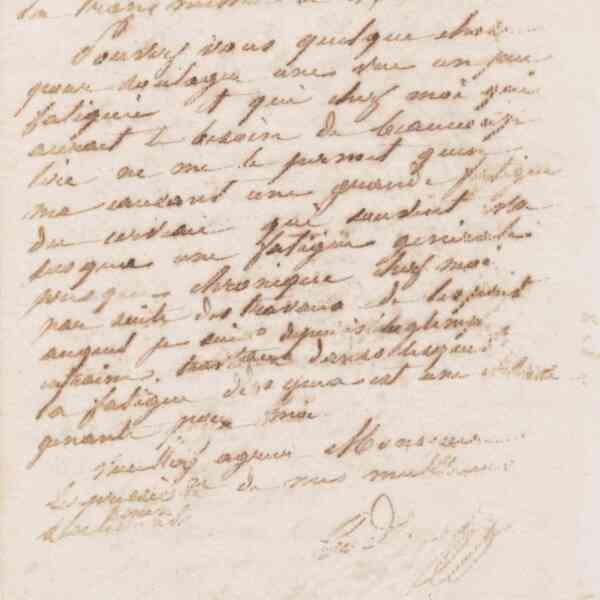 la transmission de
Pouvez vous quelque chose
pour soulager une vue un peu
fatiguée et qui chez moi qui
aurait le besoin de beaucoup
lire ne me le permet qu'en
me causant une grande fatigue
du cerveau qui souvent
jusqua une fatigue générale
presque chronique chez moi
par suite des travaux de l'esprit
auquel je suis depuis longtemps
travaux dans lesquels
la fatigue des yeux est une
genante pour moi
Veuillez agréer Monsieur
de mes meilleurs
sentiments